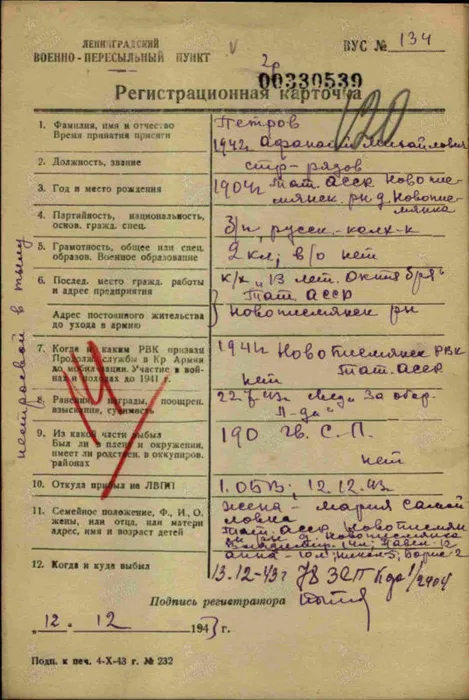 ЛЕНИНГРАДСКИЙ
ВОЕННО-ПЕРЕСЫЛЬНЫЙ ПУНКТ
V
2р
ВУС № 134
00330539
Регистрационная карточка
120
1. Фамилия, имя и отчество
Время принятия присяги
Петров
1942г Афанасий Михайлович
2. Должность, звание
стр-рядов
3. Год и место рождения
1904г Тат АССР Новопис
мянск. рн д Новопис
мянка
4. Партийность, национальность,
основн. гражд. спец.
б/п, русск-колх-к
5. Грамотность, общее или спец.
образов. Военное образование
2 кл; в/о нет
6. Послед. место гражд. работы
и адрес предприятия
к/х "13 лет. Октября"
Тат АССР
Адрес постоянного жительства
до ухода в армию
Новописмянск рн
7. Когда и каким РВК призван
Продолж. службы в Кр Армии
до мобилизации. Участие в вой-
нах и походах до 1941 г.
1941г Новописмянск РВК
Тат АССР
нет
8. Ранения, награды, поощрен.
взыскания, судимость
22.7.43г За обор.
Л-да"
9. Из какой части выбыл
Был ли в плену и окружении,
имеет ли родствен. в оккупиров.
районах
190 гв. С.П.
нет
10. Откуда прибыл на ЛВПП
1. ОБВ; 12.12.43
11. Семейное положение, Ф., И., О.
жены, или отца, или матери
адрес, имя и возраст детей
Жена - Мария Самой
ловна
Тат АССР Новописмян
рн д Новописмянка
Владимир 14л; Павел 12
Анна-10л; Никол 5; Борис 2
12. Когда и куда выбыл
13.12-43г 78 ЗСП
Подпись регистратора
"12." 12 1943 г.
Подп. к печ. 4-X-43 г. № 232
нестроевой в тылу
14